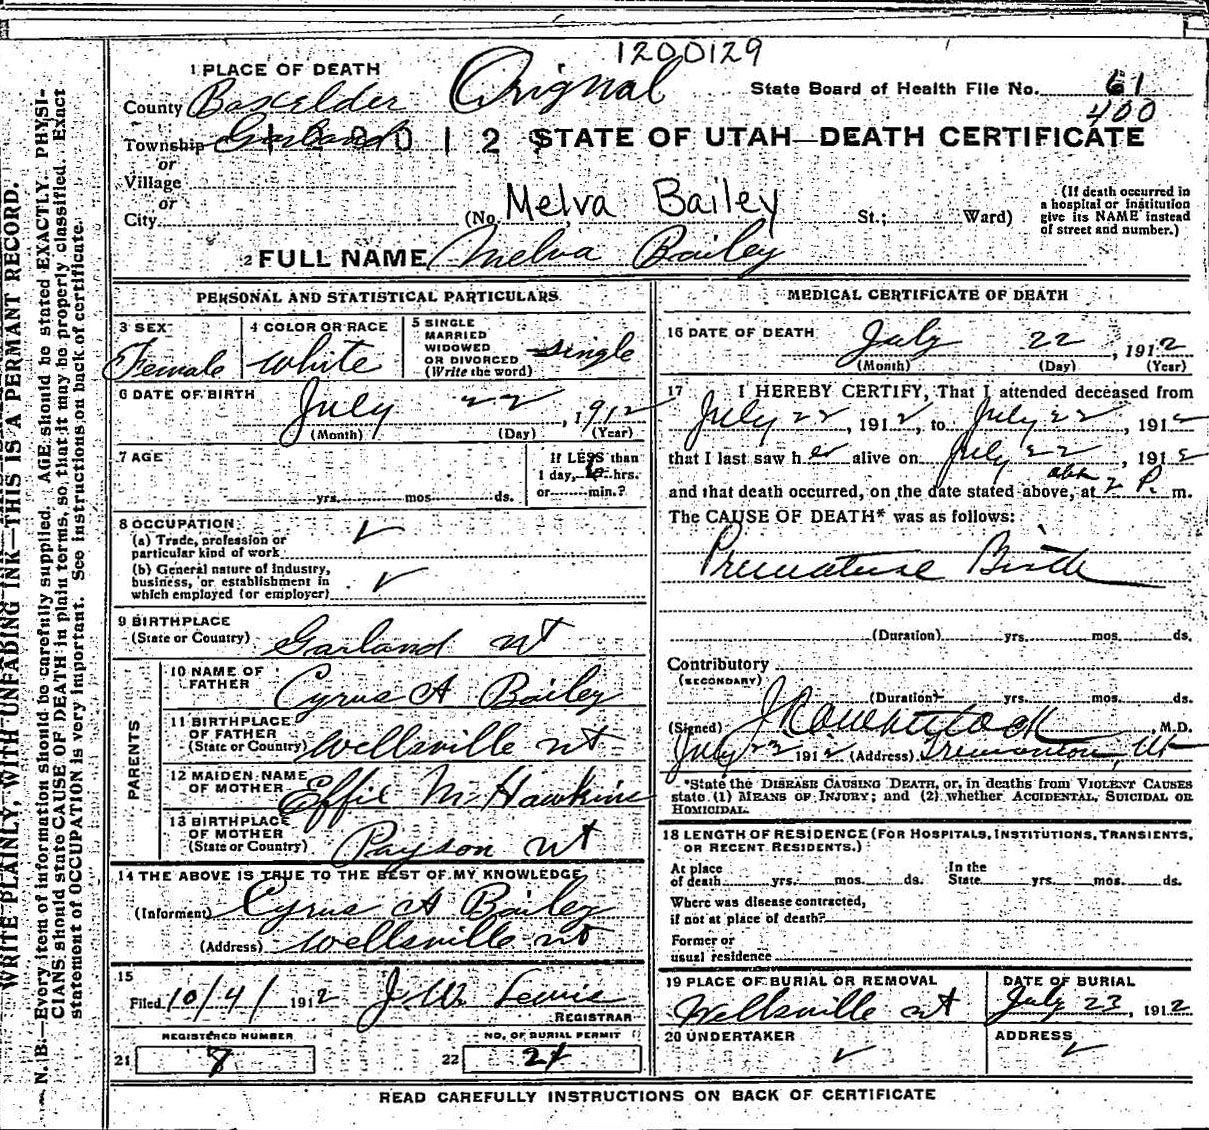 1200129
1 PLACE OF DEATH
Orignal
State Board of Health File No. 61
400
County Boxelder
Township Garland
12 STATE OF UTAH—DEATH CERTIFICATE
or
Village
or
City
(No. Melva Bailey St.; Ward)
(If death occurred in
a hospital or institution
give its NAME instead
of street and number.)
2 FULL NAME Melva Bailey
PERSONAL AND STATISTICAL PARTICULARS
3 SEX
Female
4 COLOR OR RACE
White
5 SINGLE
MARRIED
WIDOWED
OR DIVORCED
(Write the word)
single
6 DATE OF BIRTH July 22, 1912
(Month) (Day) (Year)
7 AGE
yrs. mos. ds.
If LESS than
1 day, hrs.
or min.?
8 OCCUPATION
(a) Trade, profession or
particular kind of work
(b) General nature of industry,
business, or establishment in
which employed (or employer)
9 BIRTHPLACE
(State or Country) Garland ut
PARENTS
10 NAME OF
FATHER
Cyrus A Bailey
11 BIRTHPLACE
OF FATHER
(State or Country) Wellsville ut
12 MAIDEN NAME
OF MOTHER
Effie M Hawkins
13 BIRTHPLACE
OF MOTHER
(State or Country) Payson ut
14 THE ABOVE IS TRUE TO THE BEST OF MY KNOWLEDGE
(Informent) Cyrus A Bailey
(Address) Wellsville ut
15
Filed 10/4/ 1912 J. W. Lewis
REGISTRAR
REGISTERED NUMBER
21 8
NO. OF BURIAL PERMIT
22 24
MEDICAL CERTIFICATE OF DEATH
16 DATE OF DEATH July 22, 1912
(Month) (Day) (Year)
17 I HEREBY CERTIFY, That I attended deceased from
July 22, 1912, to July 22, 1912
that I last saw her alive on July 22, 1912
and that death occurred, on the date stated above, at abt 2 P. m.
The CAUSE OF DEATH* was as follows:
Premature Birth
(Duration) yrs. mos. ds.
Contributory
(SECONDARY)
(Duration) yrs. mos. ds.
(Signed) M.D.
July 23 1912 (Address) Tremonton, Ut
*State the DISEASE CAUSING DEATH, or, in deaths from VIOLENT CAUSES
state (1) MEANS OF INJURY; and (2) whether ACCIDENTAL, SUICIDAL OR
HOMICIDAL.
18 LENGTH OF RESIDENCE (FOR HOSPITALS, INSTITUTIONS, TRANSIENTS,
OR RECENT RESIDENTS.)
At place
of death yrs. mos. ds.
In the
State yrs. mos. ds.
Where was disease contracted,
if not at place of death?
Former or
usual residence
19 PLACE OF BURIAL OR REMOVAL
Wellsville ut
DATE OF BURIAL
July 23, 1912
20 UNDERTAKER
ADDRESS
READ CAREFULLY INSTRUCTIONS ON BACK OF CERTIFICATE
WRITE PLAINLY, WITH UNFADING INK—THIS IS A PERMANT RECORD.
N. B.—Every item of information should be carefully supplied. AGE should be stated EXACTLY. PHYSI-
CIANS should state CAUSE OF DEATH in plain terms, so that it may be properly classified. Exact
statement of OCCUPATION is very important. See instructions on back of certificate.